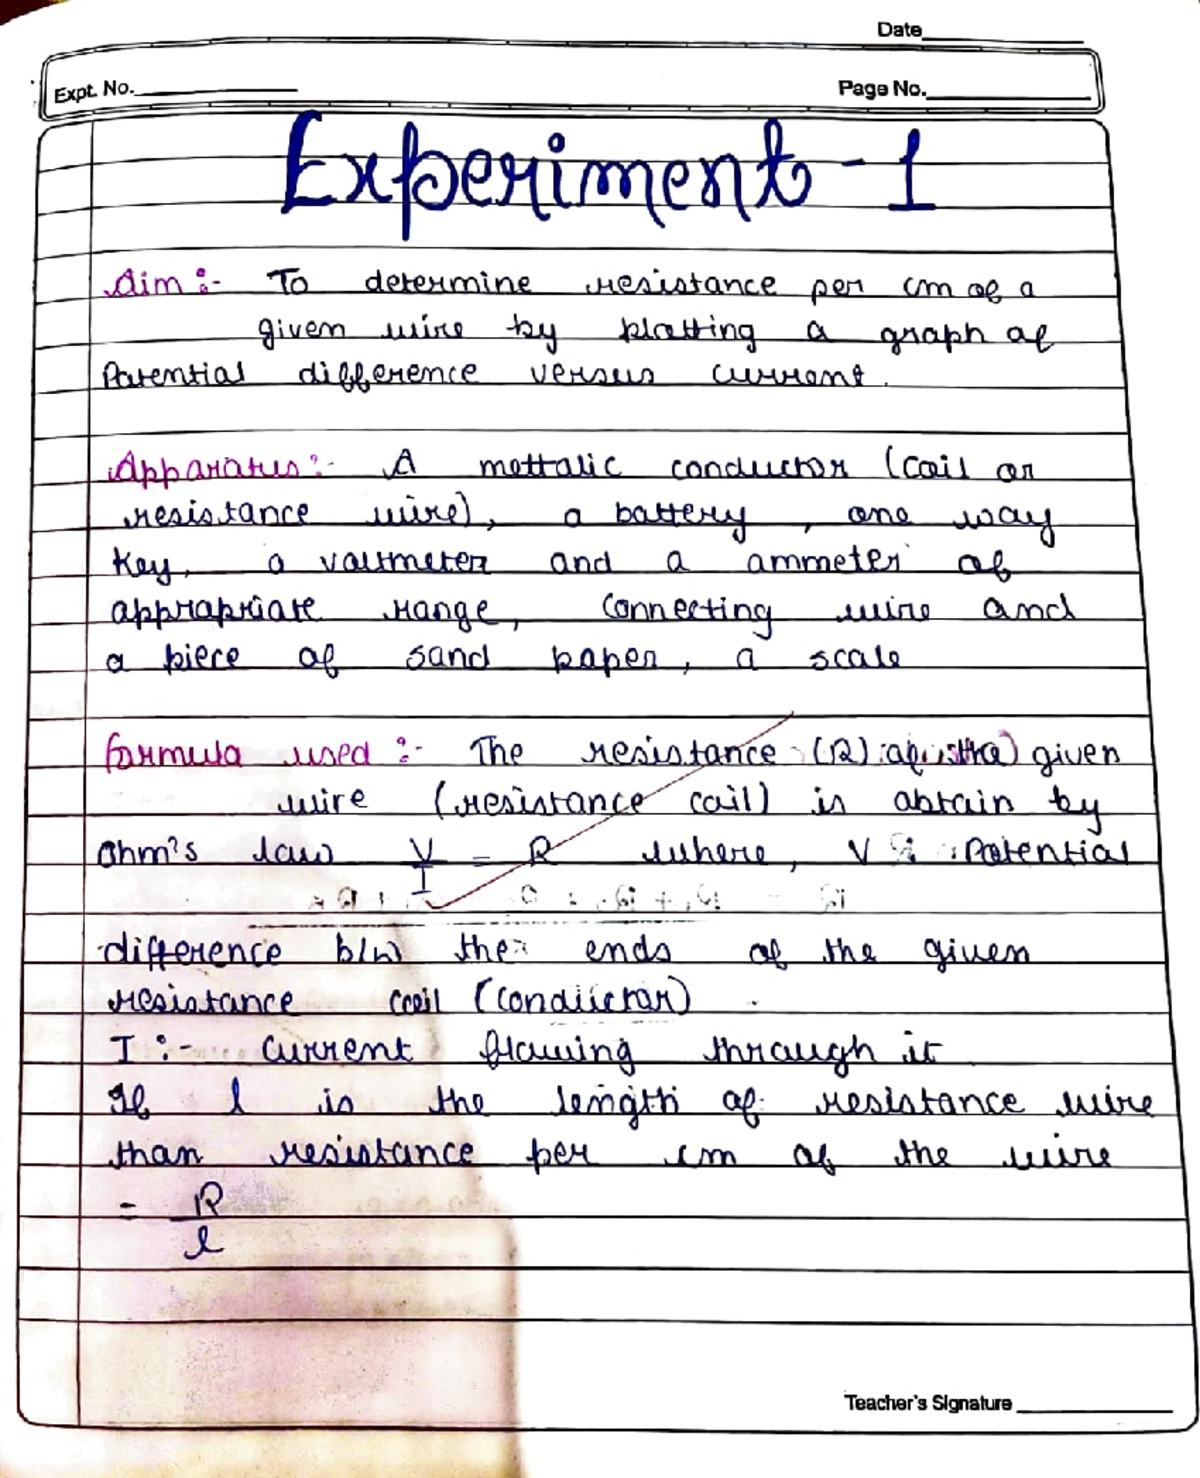 Date
Expt. No.
Page No.
Experiment - 1
Aim :- To determine resistance per cm of a
given wire by plotting a graph of
Potential difference versus current.
Apparatus :- A mettalic conductor (coil or
resistance wire), a battery, one way
Key, a voltmeter and a ammeter of
appropriate range, Connecting wire and
a piece of sand paper, a scale
formula used :- The resistance (R) of the given
wire (resistance coil) is obtain by
Ohm's law V/I = R where, V :- Potential
difference b/w the ends of the given
resistance coil (conductor)
I :- Current flowing through it
If l is the length of resistance wire
than resistance per cm of the wire
= R/l
Teacher's Signature